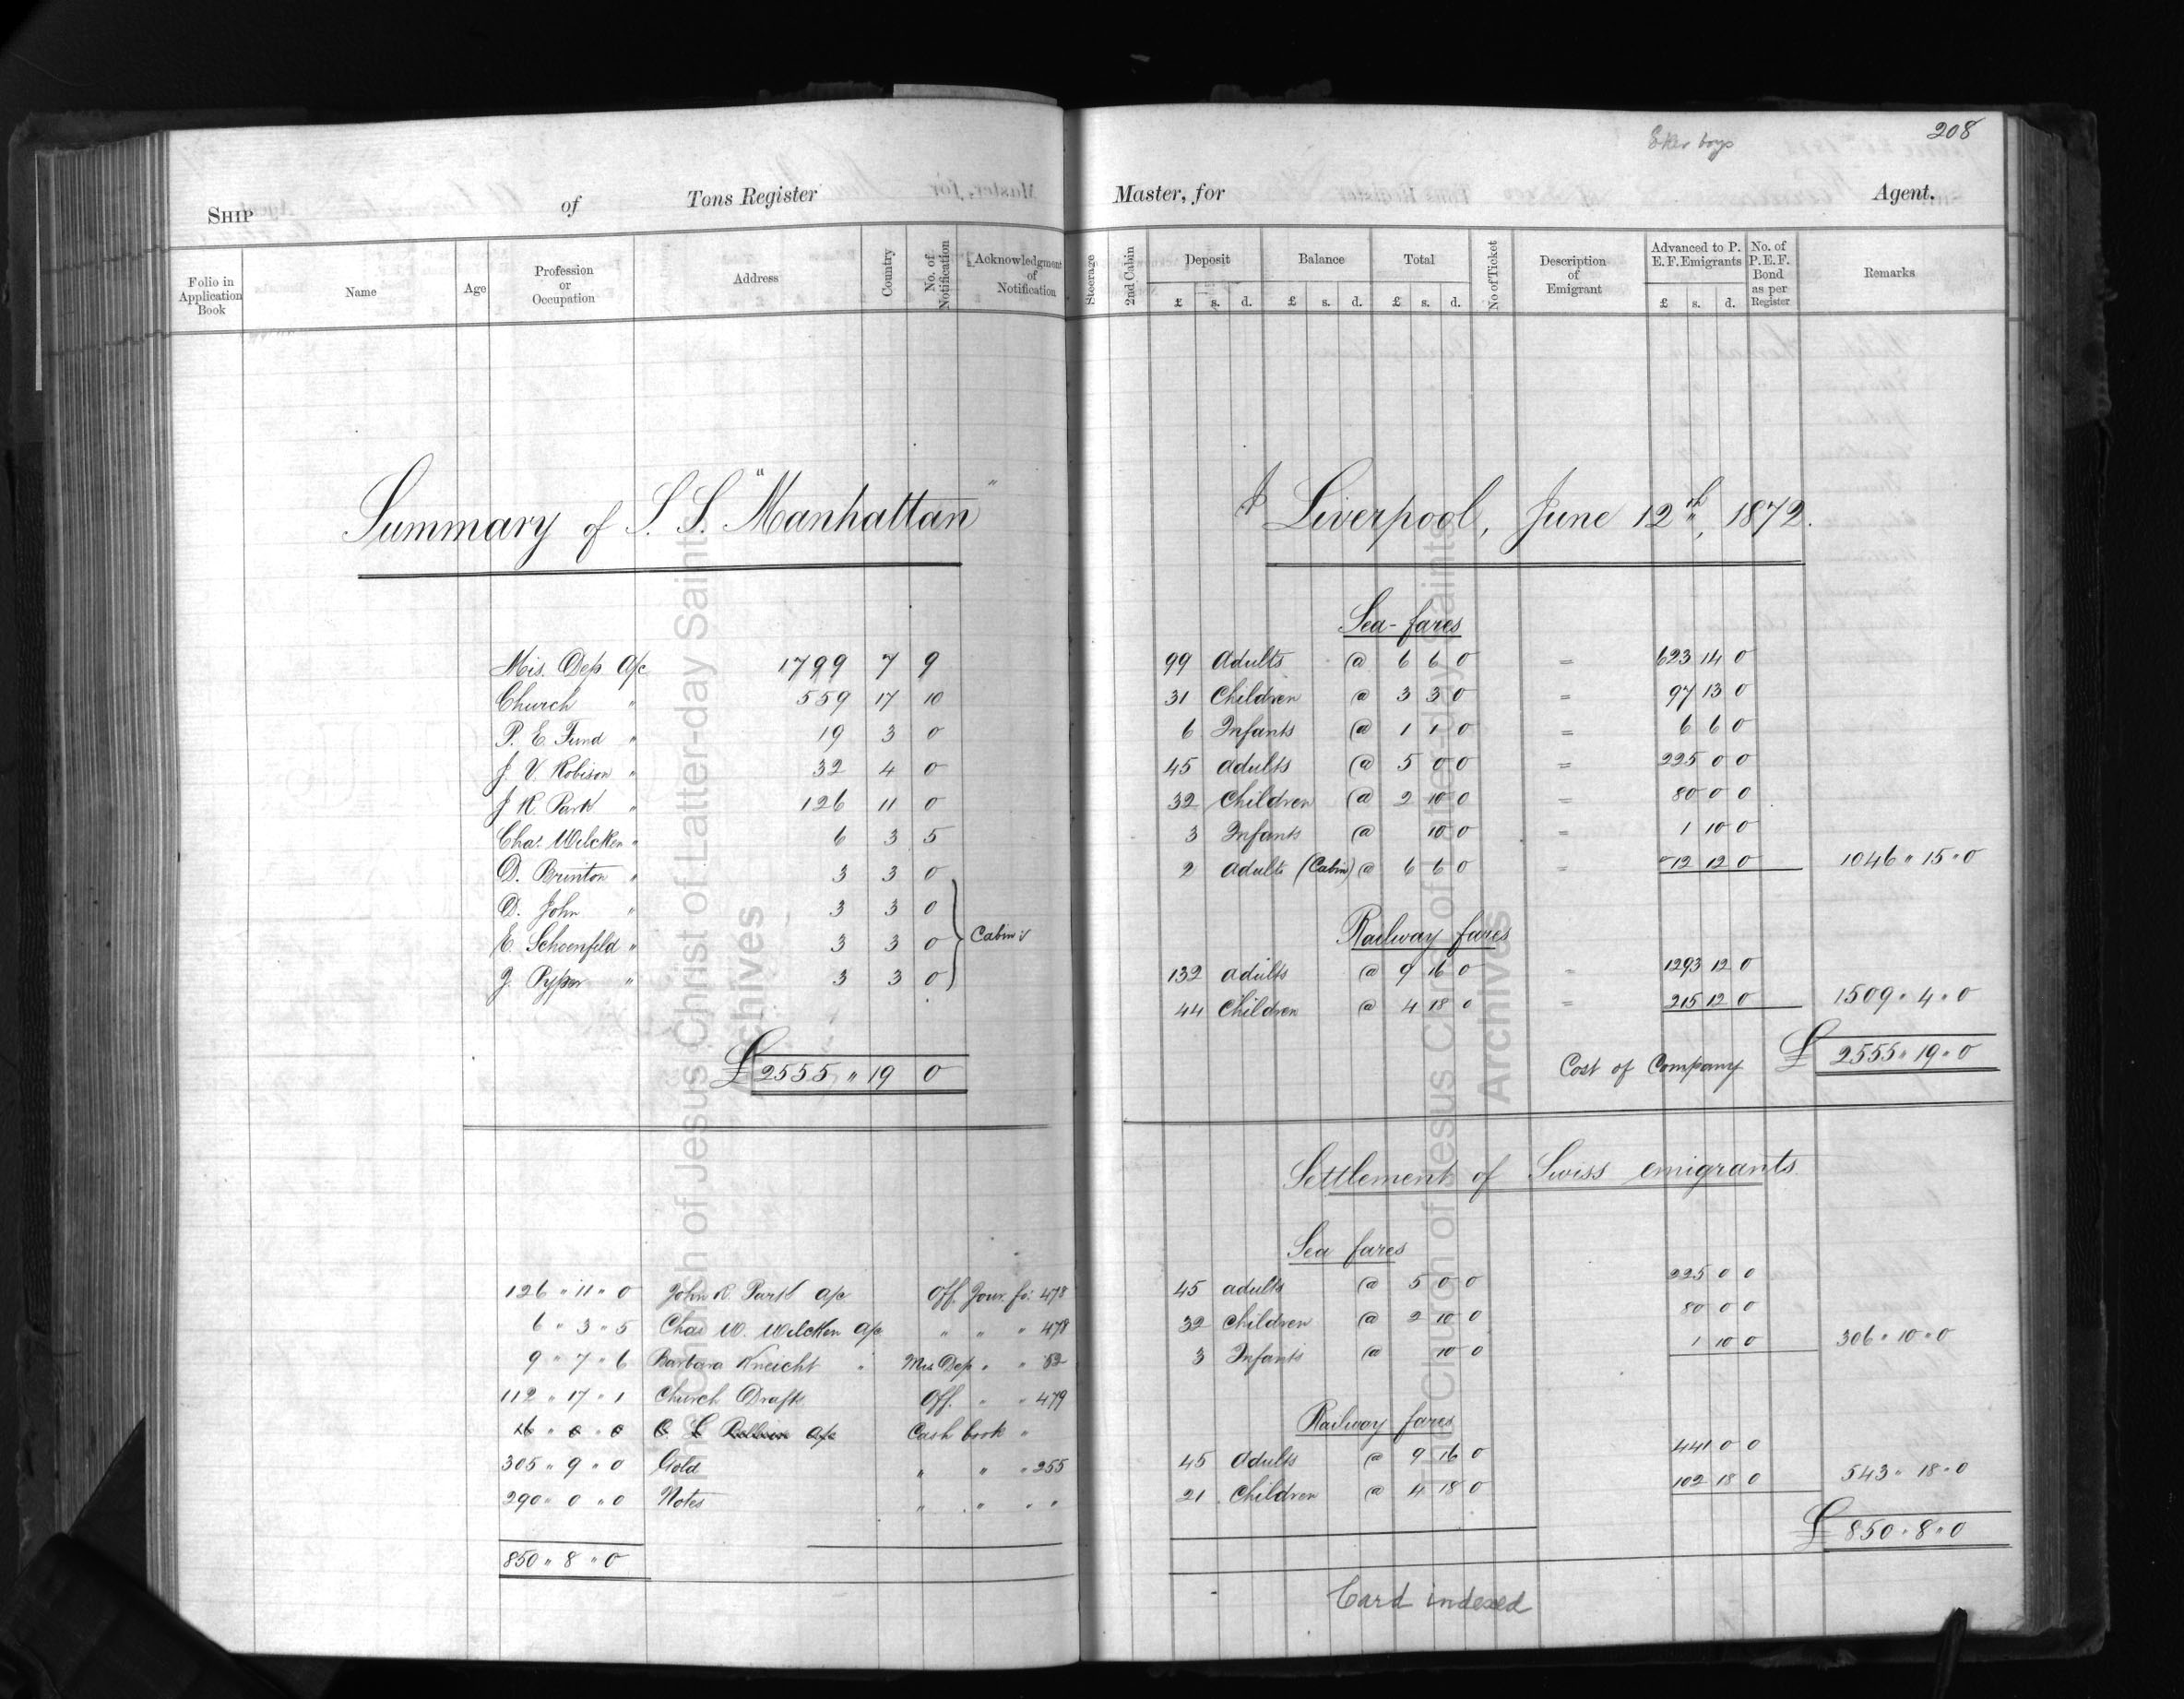 208
SHIP of Tons Register
Folio in Application Book
Name
Age
Profession or Occupation
Address
Country
No. of Notification
Acknowledgment of Notification
Summary of S. S. "Manhattan"
Mis. Dep. a/c 1799 7 9
Church " 559 17 10
P. E. Fund " 19 3 0
J. V. Robison " 32 4 0
J R. Park " 126 11 0
Chas. Wilcken " 6 3 5
D. Brinton " 3 3 0
D. John " 3 3 0
E. Schoenfeld " 3 3 0
J. Pyper " 3 3 0
Cabin
£2555 " 19 0
126 " 11 " 0 John R. Park a/c Off. Jour. fo. 478
6 " 3 " 5 Chas W. Wilcken a/c " " " 478
9 " 7 " 6 Barbara Kneicht " Mis Dep " " 82
112 " 17 " 1 Church Drafts Off. " " 479
a/c Cash book "
305 " 9 " 0 Gold " " " 255
290 " 0 " 0 Notes " " " "
850 " 8 " 0
Master, for Agent.
Steerage
2nd Cabin
Deposit £ s. d.
Balance £ s. d.
Total £ s. d.
No of Ticket
Description of Emigrant
Advanced to P. E. F. Emigrants £ s. d.
No. of P. E. F. Bond as per Register
Remarks
Liverpool, June 12th, 1872.
Sea-fares
99 Adults @ 6 6 0 = 623 14 0
31 Children @ 3 3 0 = 97 13 0
6 Infants @ 1 1 0 = 6 6 0
45 Adults @ 5 0 0 = 225 0 0
32 Children @ 2 10 0 = 80 0 0
3 Infants @ 10 0 = 1 10 0
2 Adults (Cabin) @ 6 6 0 = 12 12 0 1046 " 15 " 0
Railway fares
132 adults @ 9 16 0 = 1293 12 0
44 Children @ 4 18 0 = 215 12 0 1509 " 4 " 0
Cost of Company £ 2555 " 19 " 0
Settlement of Swiss emigrants
Sea fares
45 adults @ 5 0 0 225 0 0
32 Children @ 2 10 0 80 0 0
3 Infants @ 10 0 1 10 0 306 " 10 " 0
Railway fares
45 Adults @ 9 16 0 441 0 0
21 Children @ 4 18 0 102 18 0 543 " 18 " 0
£ 850 " 8 " 0
Card indexed
The Church of Jesus Christ of Latter-day Saints
Archives
The Church of Jesus Christ of Latter-day Saints
Archives